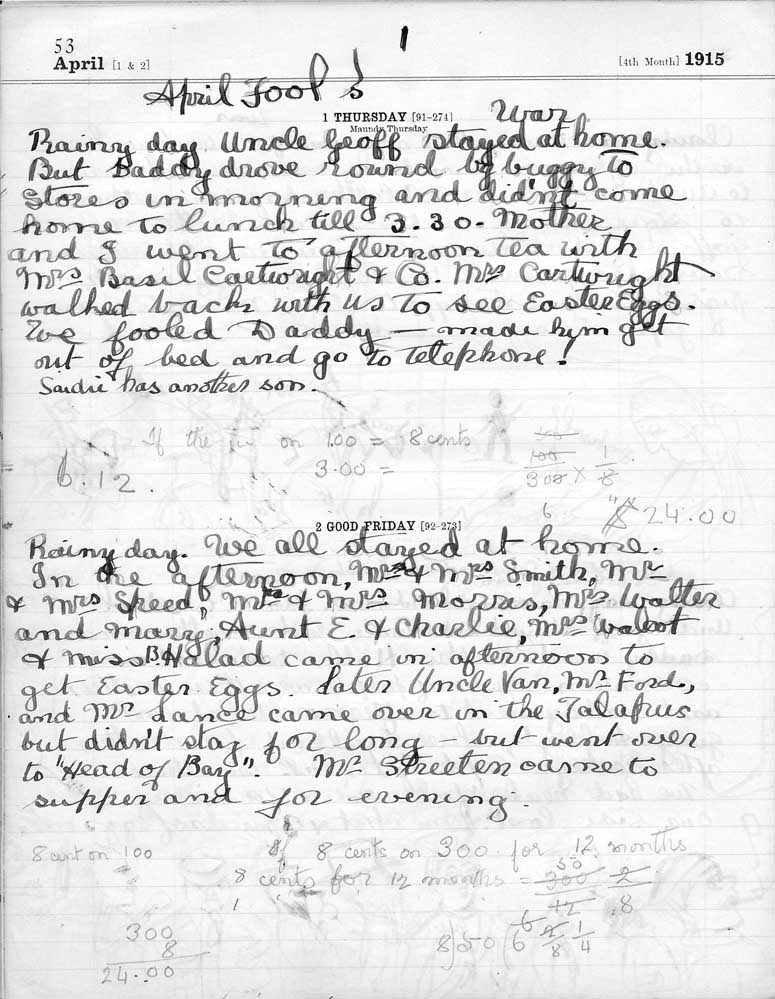 1
53
April [1 & 2] [4th Month] 1915
April Fool's
1 THURSDAY [91-274] War
Maundy Thursday
Rainy day Uncle Geoff stayed at home.
But Daddy drove round by buggy to
Stores in morning and didn't come
home to lunch till 3.30. Mother
and I went to afternoon tea with
Mrs Basil Cartwright & Co. Mrs Cartwright
walked back with us to see Easter Eggs.
We fooled Daddy — made him get
out of bed and go to telephone!
Saidie has another son.
If the on 100 = 8 cents
6.12. 3.00 =
300 x 1/8
6 $24.00
2 GOOD FRIDAY [92-273]
Rainy day. We all stayed at home.
In the afternoon, Mr & Mrs Smith, Mr
& Mrs Speed, Mr & Mrs Morris, Mrs Walter
and Mary, Aunt E. & Charlie, Mrs
& Miss Halad came in afternoon to
get Easter Eggs. Later Uncle Van, Mr Ford,
and Mr Lance came over in the Talapus
but didn't stay for long – but went over
to "Head of Bay". Mr Streeten came to
supper and for evening.
8 cent on 100 8 cents on 300 for 12 months
8 cents for 12 months = 300 2
50
12 8
1
300
8
24.00
8)50(6 2/8 1/4
6